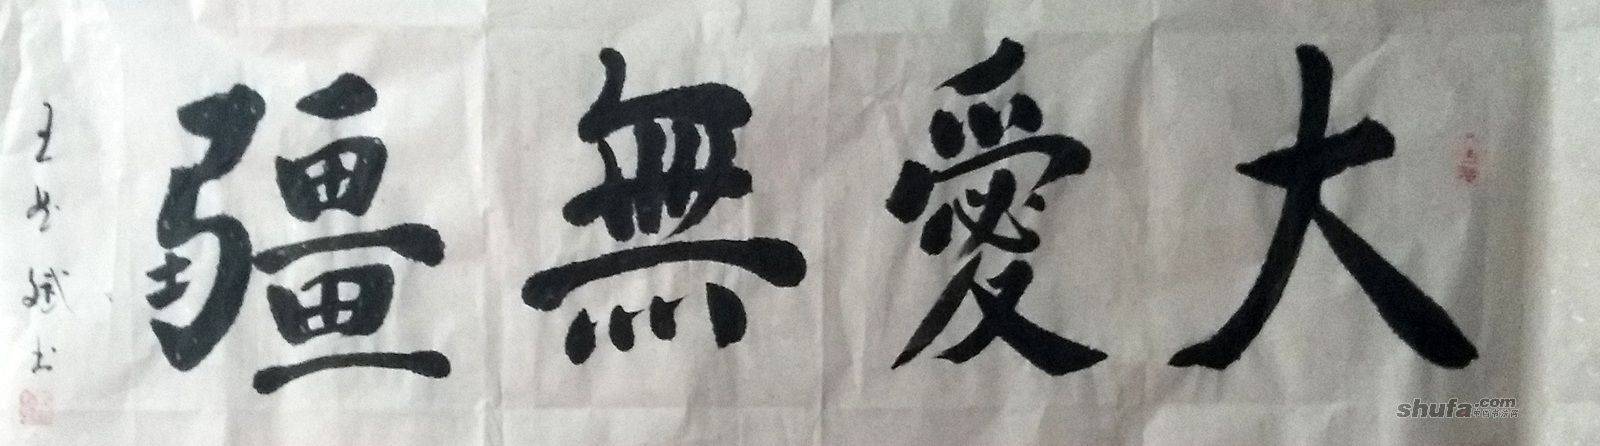 大愛無疆
王世斌书
shufa.com